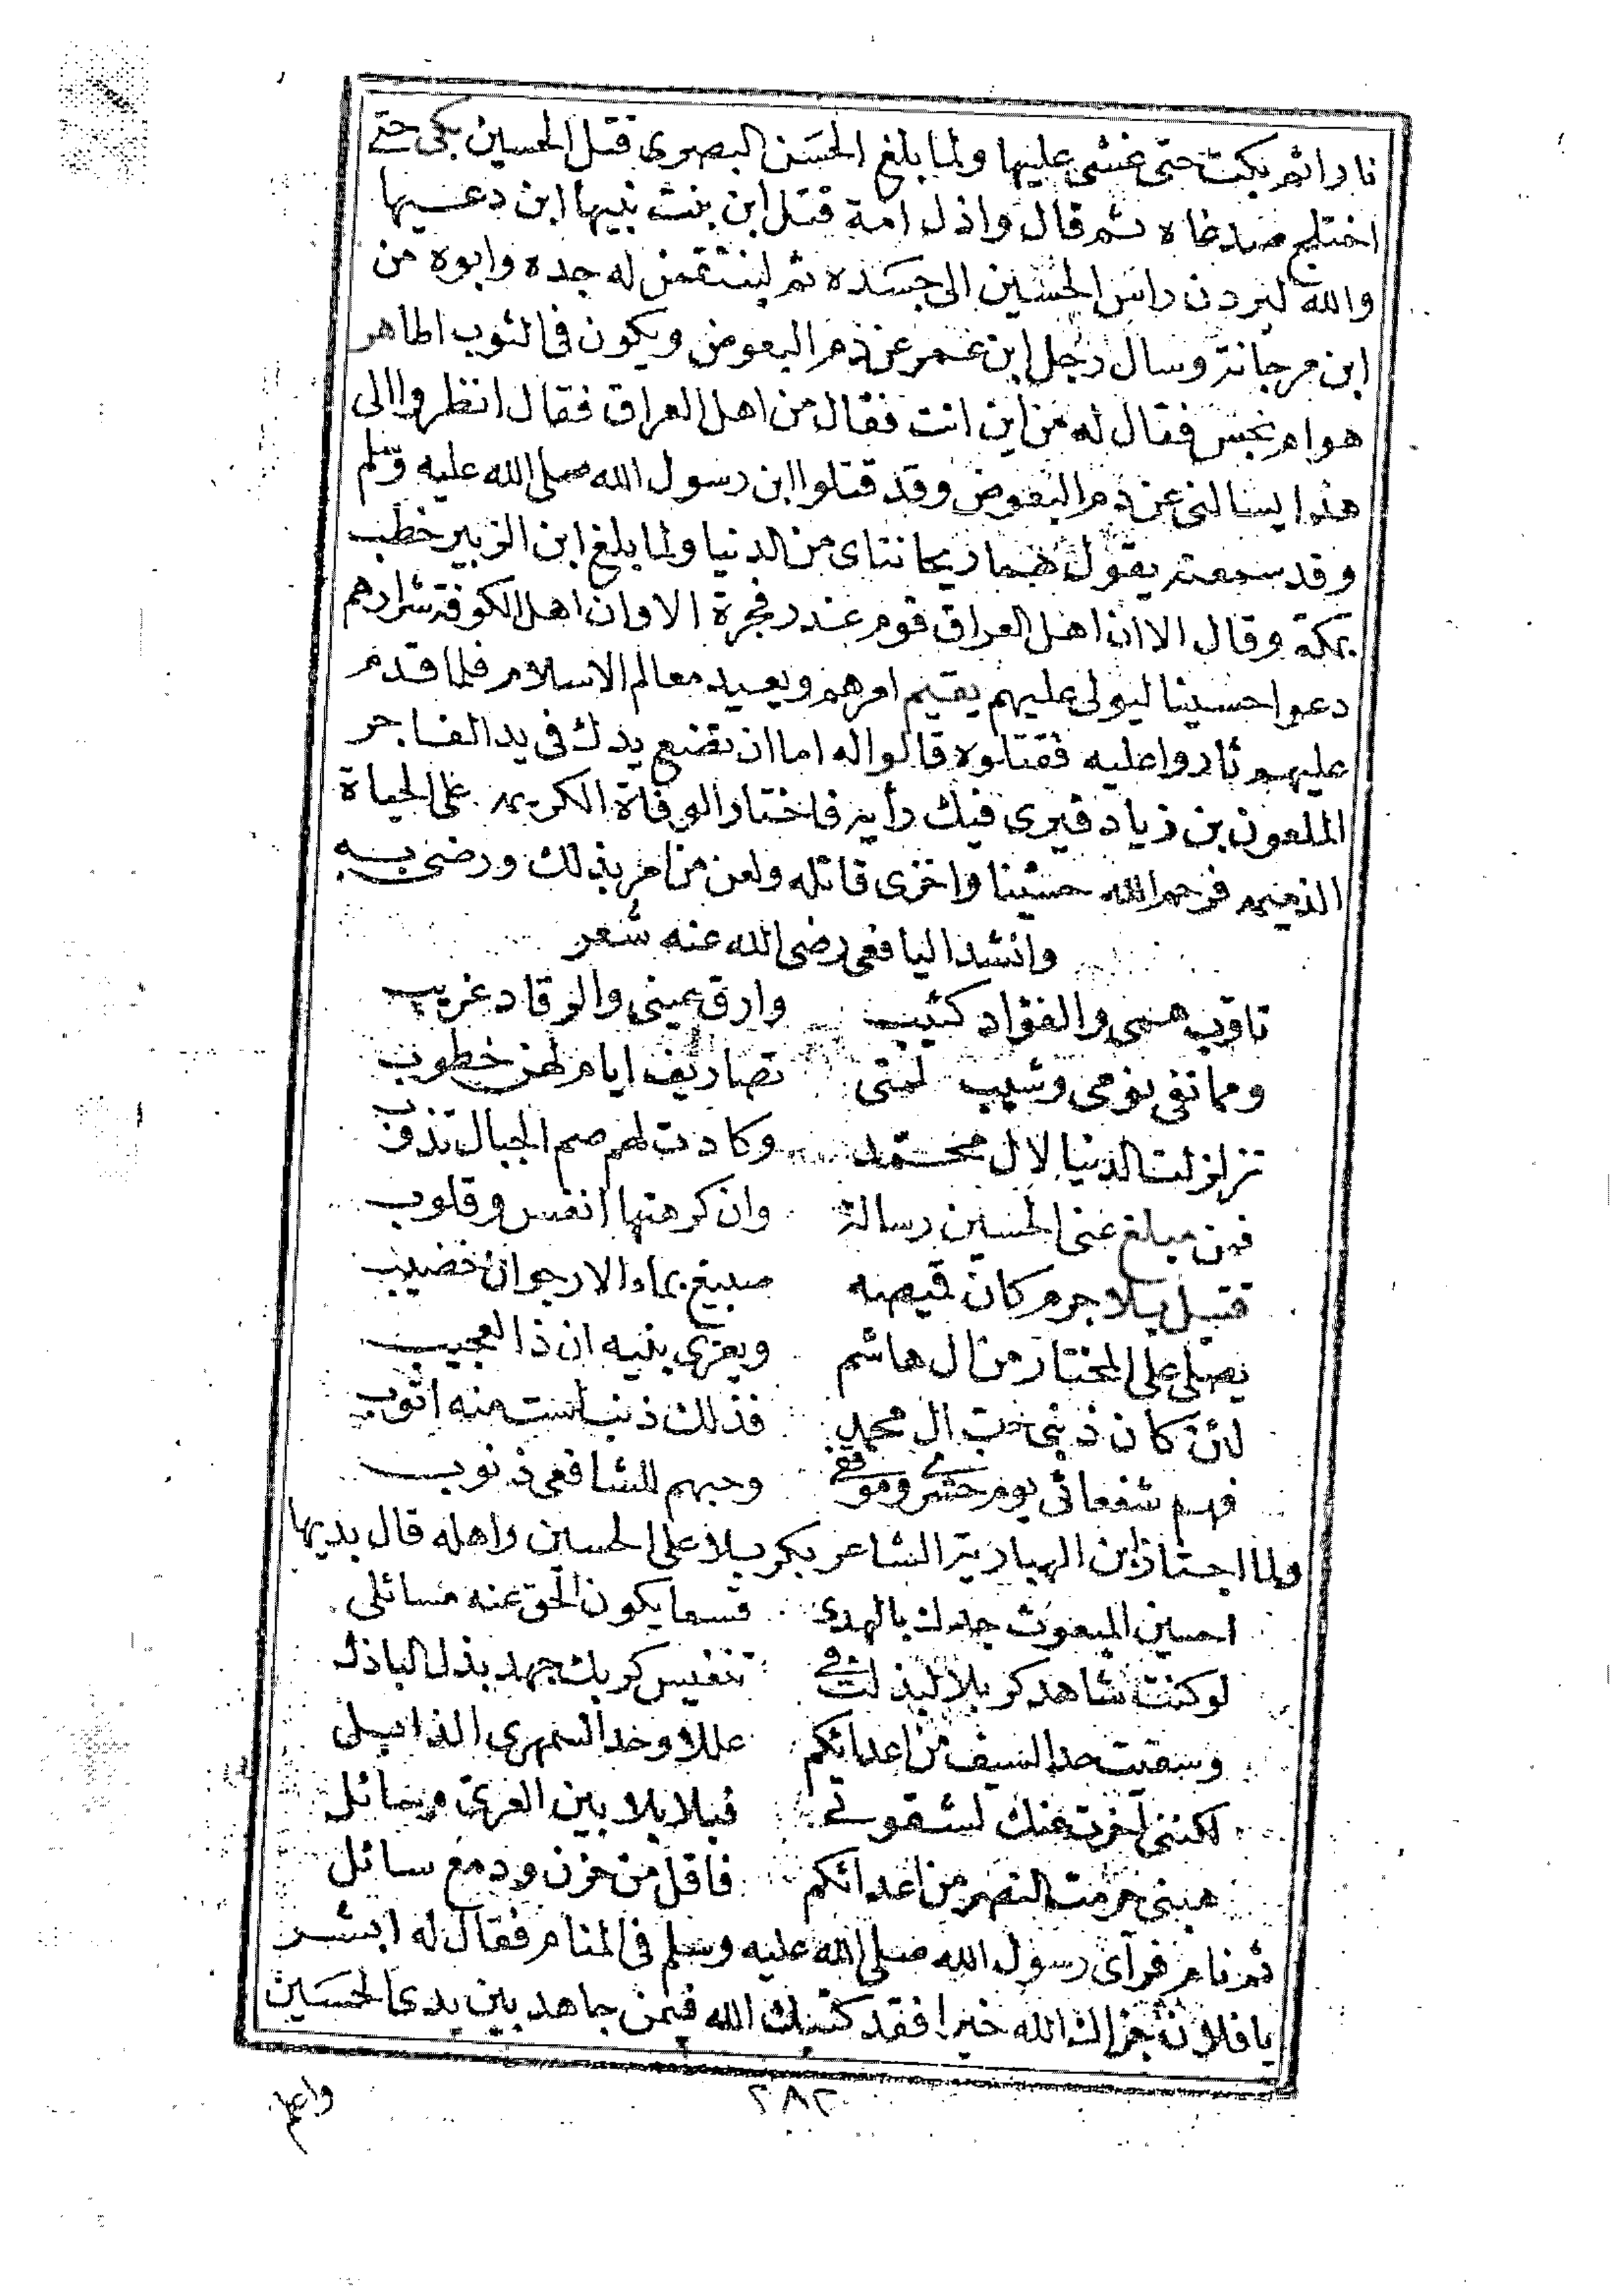 نارا ثم بكت حتى غشى عليها ولما بلغ الحسن البصرى قتل الحسين بكى حتى
اختلج صدغاه ثم قال واذل امة قتل ابن بنت نبيها ابن دعيها
والله ليردن راس الحسين الى جسده ثم لينتقمن له جده وابوه من
ابن مرجانة وسال رجل ابن عمر عن دم البعوض ويكون فى الثوب الطاهر
هو ام نجس فقال له من اين انت فقال من اهل العراق فقال انظروا الى
هذا يسالنى عن دم البعوض وقد قتلوا ابن رسول الله صلى الله عليه وسلم
وقد سمعته يقول هما ريحانتاى من الدنيا ولما بلغ ابن الزبير خطب
بمكة وقال الا ان اهل العراق قوم غدر فجرة الا وان اهل الكوفة شرارهم
دعوا حسينا ليولى عليهم يقيم امرهم ويعيد معالم الاسلام فلما قدم
عليهم ثاروا عليه فقتلوه قالوا له اما ان تضع يدك فى يد الفاجر
الملعون بن زياد فيرى فيك رأيه فاختار الوفاة الكريمه على الحياة
الذميمه فرحم الله حسينا واخزى قاتله ولعن من امر بذلك ورضى به
وانشد اليافعى رضى الله عنه شعر
تاوب همى والفؤاد كئيب وارق عينى والرقاد غريب
ومما نفى نومى وشيب لمتى تصاريف ايام لهن خطوب
تزلزلت الدنيا لال محمد وكادت لهم صم الجبال تذوب
فمن مبلغ عنى الحسين رسالة وان كرهتها انفس وقلوب
قتيل بلا جرم كان قميصه صبيغ بماء الارجوان خضيب
يصلى على المختار من ال هاشم ويغزى بنيه ان ذا لعجيب
لئن كان ذنبى حب ال محمد فذلك ذنب لست منه اتوب
فهم شفعائى يوم حشرى وموقفى وحبهم للشافعى ذنوب
ولما اجتاز ابن الهبارية الشاعر بكربلا على الحسين واهله قال بديها
احسين المبعوث جدك بالهدى قسما يكون الحق عنه مسائلى
لو كنت شاهد كربلا لبذلت فى تنفيس كربك جهد بذل الباذل
وسقيت حد السيف من اعدائكم عللا وحد السمهرى الذابل
لكننى اخرت عنك لشقوتى فبلابلا بين الغرى وبابل
هبنى حرمت النصر من اعدائكم فاقل من حزن ودمع سائل
ثم نام فرآى رسول الله صلى الله عليه وسلم فى المنام فقال له ابشر
يا فلان جزاك الله خيرا فقد كتبك الله فيمن جاهد بين يدى الحسين
٢٨٢
واعلم